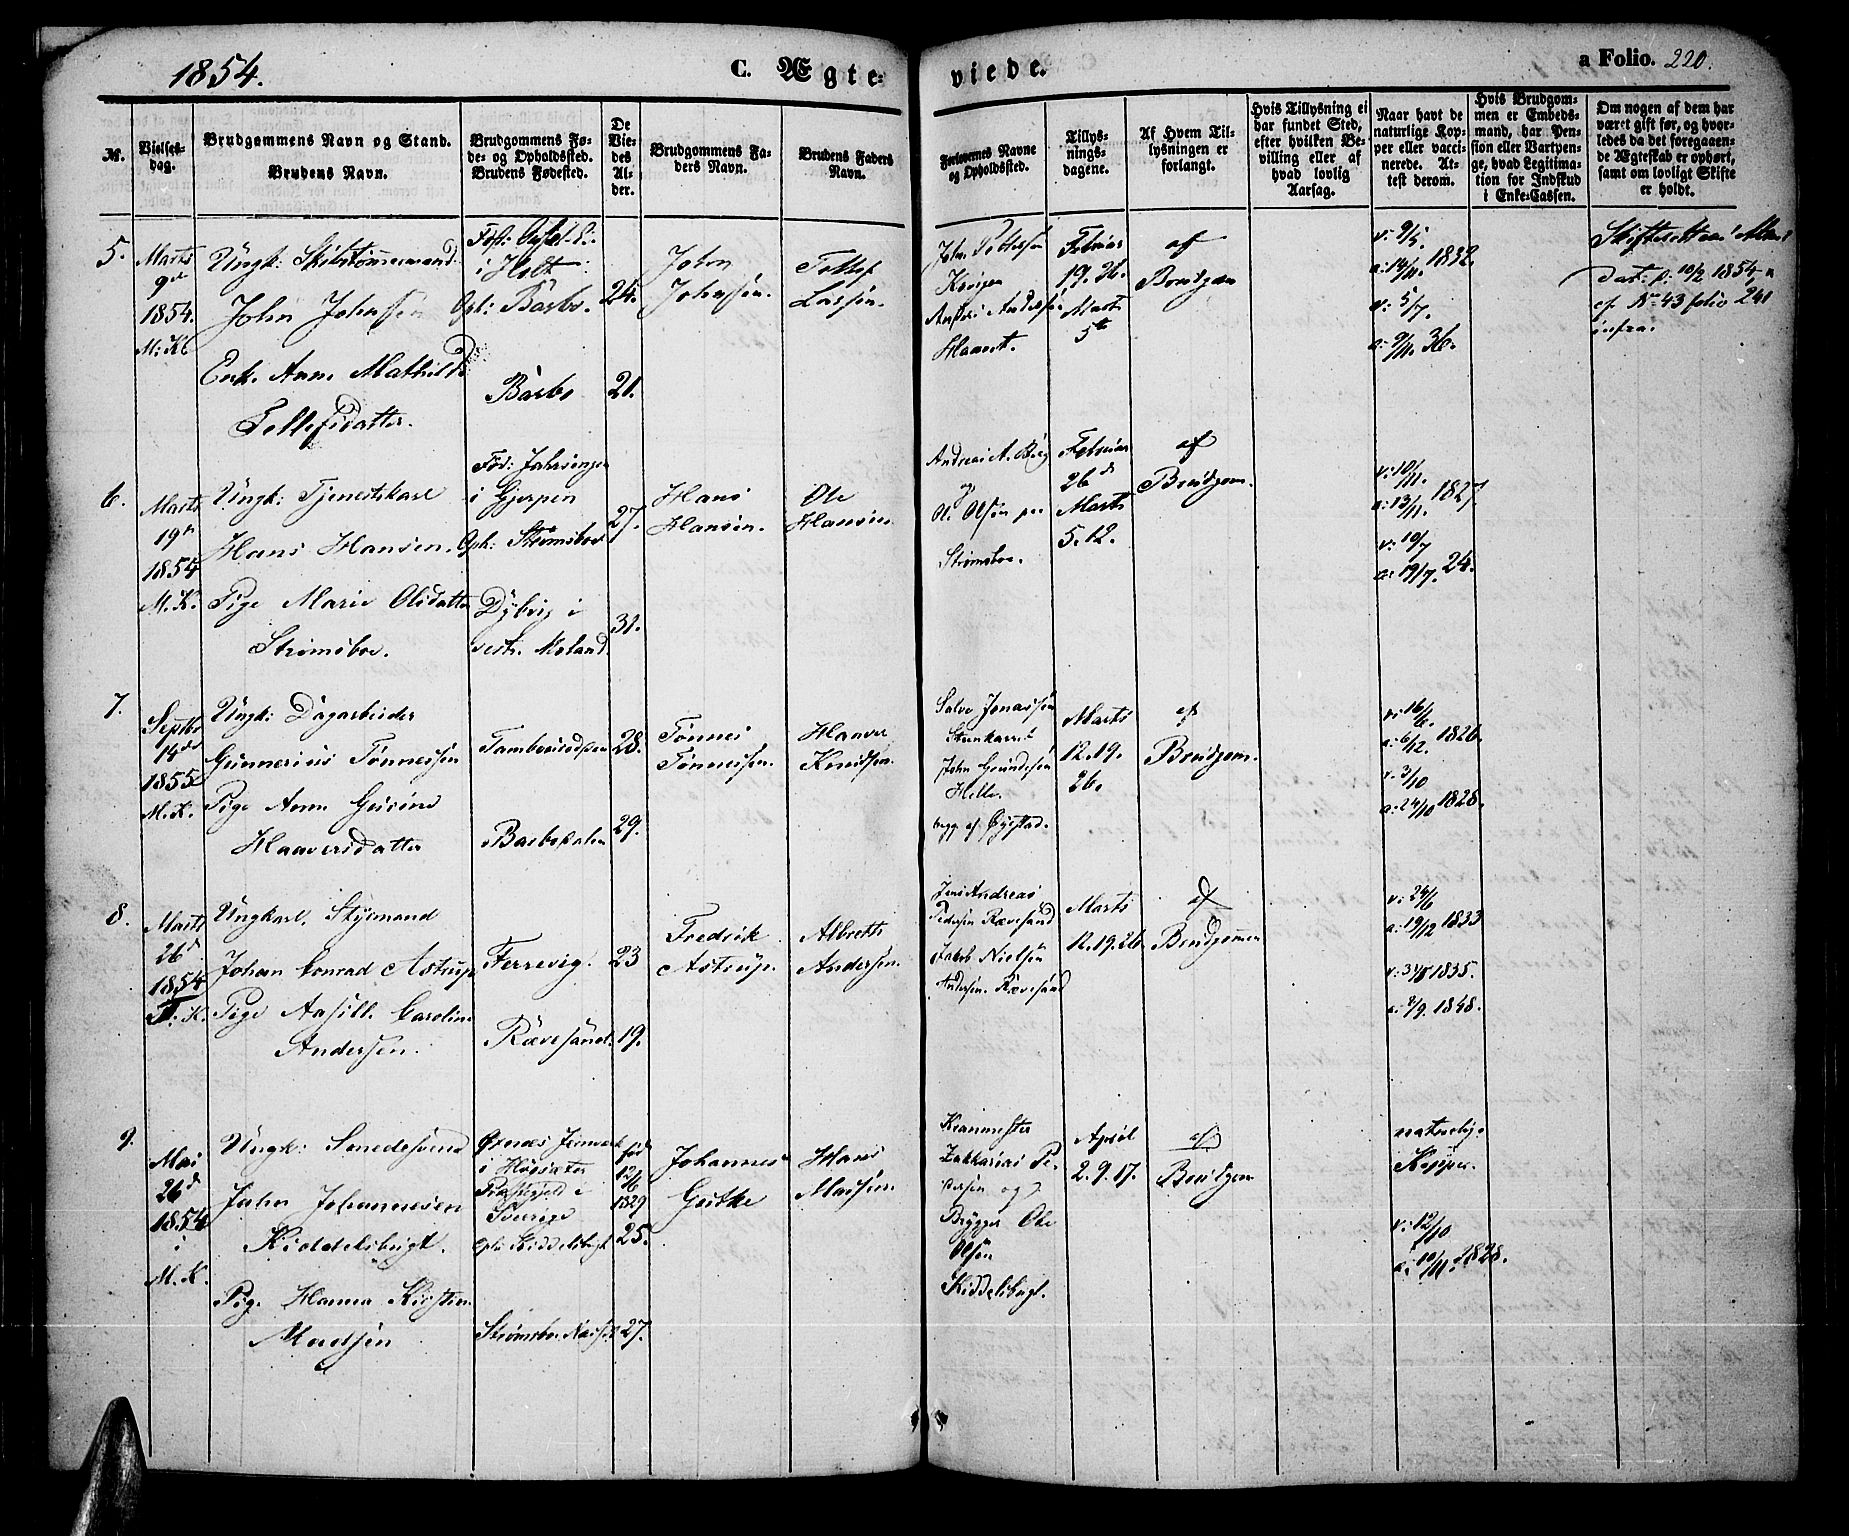 1854.
C. Ægte-
viede.
a Folio. 220.
№.
Vielses-
dag.
Brudgommens Navn og Stand.
Brudens Navn.
Brudgommens Fø-
de- og Opholdssted.
Brudens Fødested.
De
Vie-
des
Al-
der.
Brudgommens Fa-
ders Navn.
Brudens Faders
Navn.
Forlovernes Navne
og Opholdssted.
Tillys-
nings-
dagene.
Af Hvem Til-
lysningen er
forlangt.
Hvis Tillysning ei
har fundet Sted,
efter hvilken Be-
villing eller af
hvad lovlig
Aarsag.
Naar havt de
naturlige Kop-
per eller vacci-
nerede. At-
test derom.
Hvis Brudgom-
men er Embeds-
mand, har Pen-
sion eller Vartpen-
ge, hvad Legitima-
tion for Indskud
i Enke-Cassen.
Om nogen af dem har
været gift før, og hvor-
ledes da det foregaaen-
de Ægteskab er ophørt,
samt om lovligt Skifte
er holdt.
5.
Marts
9de
1854.
M: K.
Ungk: Skibstømmermand
John Johnsen
Enk. Anne Mathilde
Tellefsdatter.
i Holt
Oph: Barbo.
Barbo
24.
21.
John
Johnsen.
Tellef
Larsen.
John Pettersen
Marts
5te
Februar
19. 26.
af
Brudgom
v: 9/5
a: 14/11 1832.
v: 5/7.
a: 9/11. 36.
Dat: p: 10/2 1854,
cf No 43 folio 241
infra.
6.
Marts
19de
1854
M. K.
Ungk: Tjenestekarl
Hans Hansen.
Pige Marie Olsdatter
Strømsboe.
i Gjerpen
Oph: Strømsboe
Dybvig i
østr. Moland.
27.
31.
Hans
Hansen.
Ole
Hansen
Andreas A. Berg
og
Ole Olsen paa
Strømsboe.
Februar
26de
Marts
5. 12.
af
Brudgom.
v: 10/11.
a: 13/11. 1827
v: 10/7
a: 19/7. 24.
7.
Septbr
14de
1855
M. K.
Ungk: Dagarbeider
Gunnerius Tønnessen
Pige Anne Gusine
Haaversdatter
Barbodalen
28.
29.
Tønnes
Tønnessen.
Haaver
Knudsen.
Salve Jonassen
John Gundersen
Helle.
begge af Øyestad.
Marts
12. 19.
26.
af
Brudgom.
v: 16/6.
a: 6/12. 1826.
v: 3/10
a: 24/10 1828.
8.
Marts
26de
1854
T: K.
Ungkarl, Styrmand
Johan Conrad Astrup
Pige Aasill. Caroline
Andersen.
Fervevig.
Rævesand.
23
19.
Fredrik
Astrup.
Albreth
Andersen.
Jens Andreas
Pedersen Rævesand
Jakob Nielsen
Andersen. Rævesand
Marts
12. 19. 26
af
Brudgommen
v: 24/6
a: 19/12 1833
v: 31/8 1835.
a: 8/9. 1848.
9.
Mai
26de
1854
i
M. K.
Ungk: Smedesvend
John Johannesen
Kiddelsbugt.
Pige Hanna Kirstine
Madsen
Præstegjeld i
Sverige
Oph: Kiddelsbugt
født
12/6
1829
25.
27.
Johannes
Gutke
Hans
Madsen.
Zakkarias Pe-
dersen og
Brygger Ole
Olsen
Kiddelsbugt.
April
2. 9. 17.
af
Brudgom
naturlige
Kopper.
v: 12/10
a: 10/11. 1828.